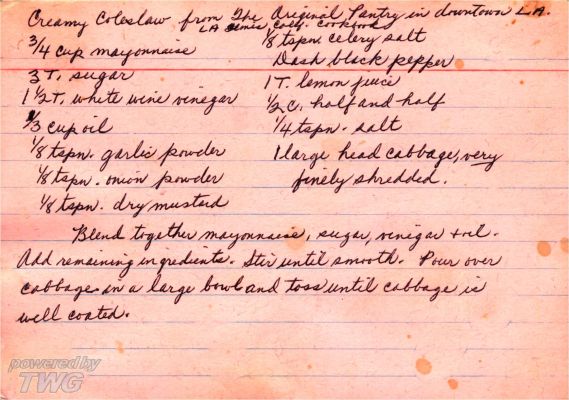 Creamy Coleslaw from The Original Pantry in downtown L.A.
LA Times Calif. cookbook
3/4 cup mayonnaise
3 T. sugar
1 1/2 T. white wine vinegar
1/3 cup oil
1/8 tspn. garlic powder
1/8 tspn. onion powder
1/8 tspn. dry mustard
1/8 tspn. celery salt
Dash black pepper
1 T. lemon juice
1/2 c. half and half
1/4 tspn. salt
1 large head cabbage, very
finely shredded.
Blend together mayonnaise, sugar, vinegar + oil.
Add remaining ingredients. Stir until smooth. Pour over
cabbage in a large bowl and toss until cabbage is
well coated.
powered by
TWG